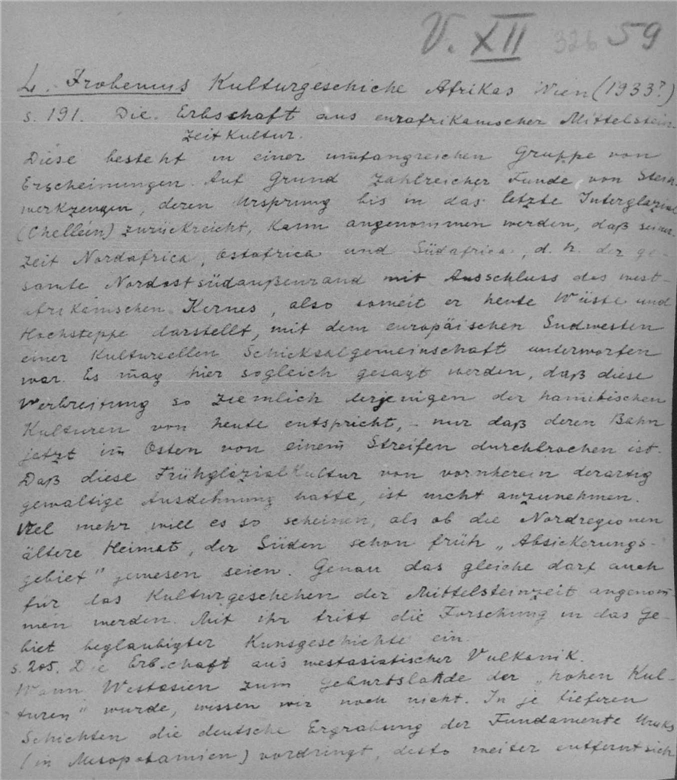 V. XII 326 59
L. Frobenius Kulturgeschiche Afrikas Wien (1933?)
s. 191. Die Erbschaft aus eurafrikanischer Mittelstein-
zeitkultur.
Diese besteht in einer umfangreichen Gruppe von
Erscheinungen. Auf Grund zahlreicher Funde von Stein-
werkzeugen, deren Ursprung bis in das letzte Interglazial
(Chelléen) zurückreicht, kann angenommen werden, daß seiner-
zeit Nordafrica, Ostafrica und Südafrica, d. h. der ge-
samte Nordostsüdaußenrand mit Ausschluss des west-
afrikanischen Kernes, also soweit er heute Wüste und
Hochsteppe darstellt, mit dem europäischen Südwesten
einer kulturellen Schicksalgemeinschaft unterworfen
war. Es mag hier sogleich gesagt werden, daß diese
Verbreitung so ziemlich derjenigen der hamitischen
Kulturen von heute entspricht, - nur daß deren Bahn
jetzt im Osten von einem Streifen durchbrochen ist.
Daß diese Frühglazialkultur von vornherein derartig
gewaltige Ausdehnung hatte, ist nicht anzunehmen.
Viel mehr will es so scheinen, als ob die Nordregionen
ältere Heimat, der Süden schon früh „Absickerungs-
gebiet" gewesen seien. Genau das gleiche darf auch
für das Kulturgeschehen der Mittelsteinzeit angenom-
men werden. Mit ihr tritt die Forschung in das Ge-
biet beglaubigter Kunsgeschichte ein.
s. 205. Die Erbschaft aus westasiatischer Vulkanik.
Wann Westasien zum Geburtslande der „hohen Kul-
turen" wurde, wissen wir noch nicht. In je tieferen
Schichten die deutsche Ergrabung der Fundamente Uruks
(in Mesopotamien) vordringt, desto weiter entfernt sich